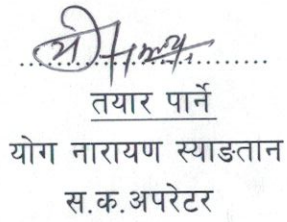 तयार पार्ने
योग नारायण स्याङतान
स.क.अपरेटर